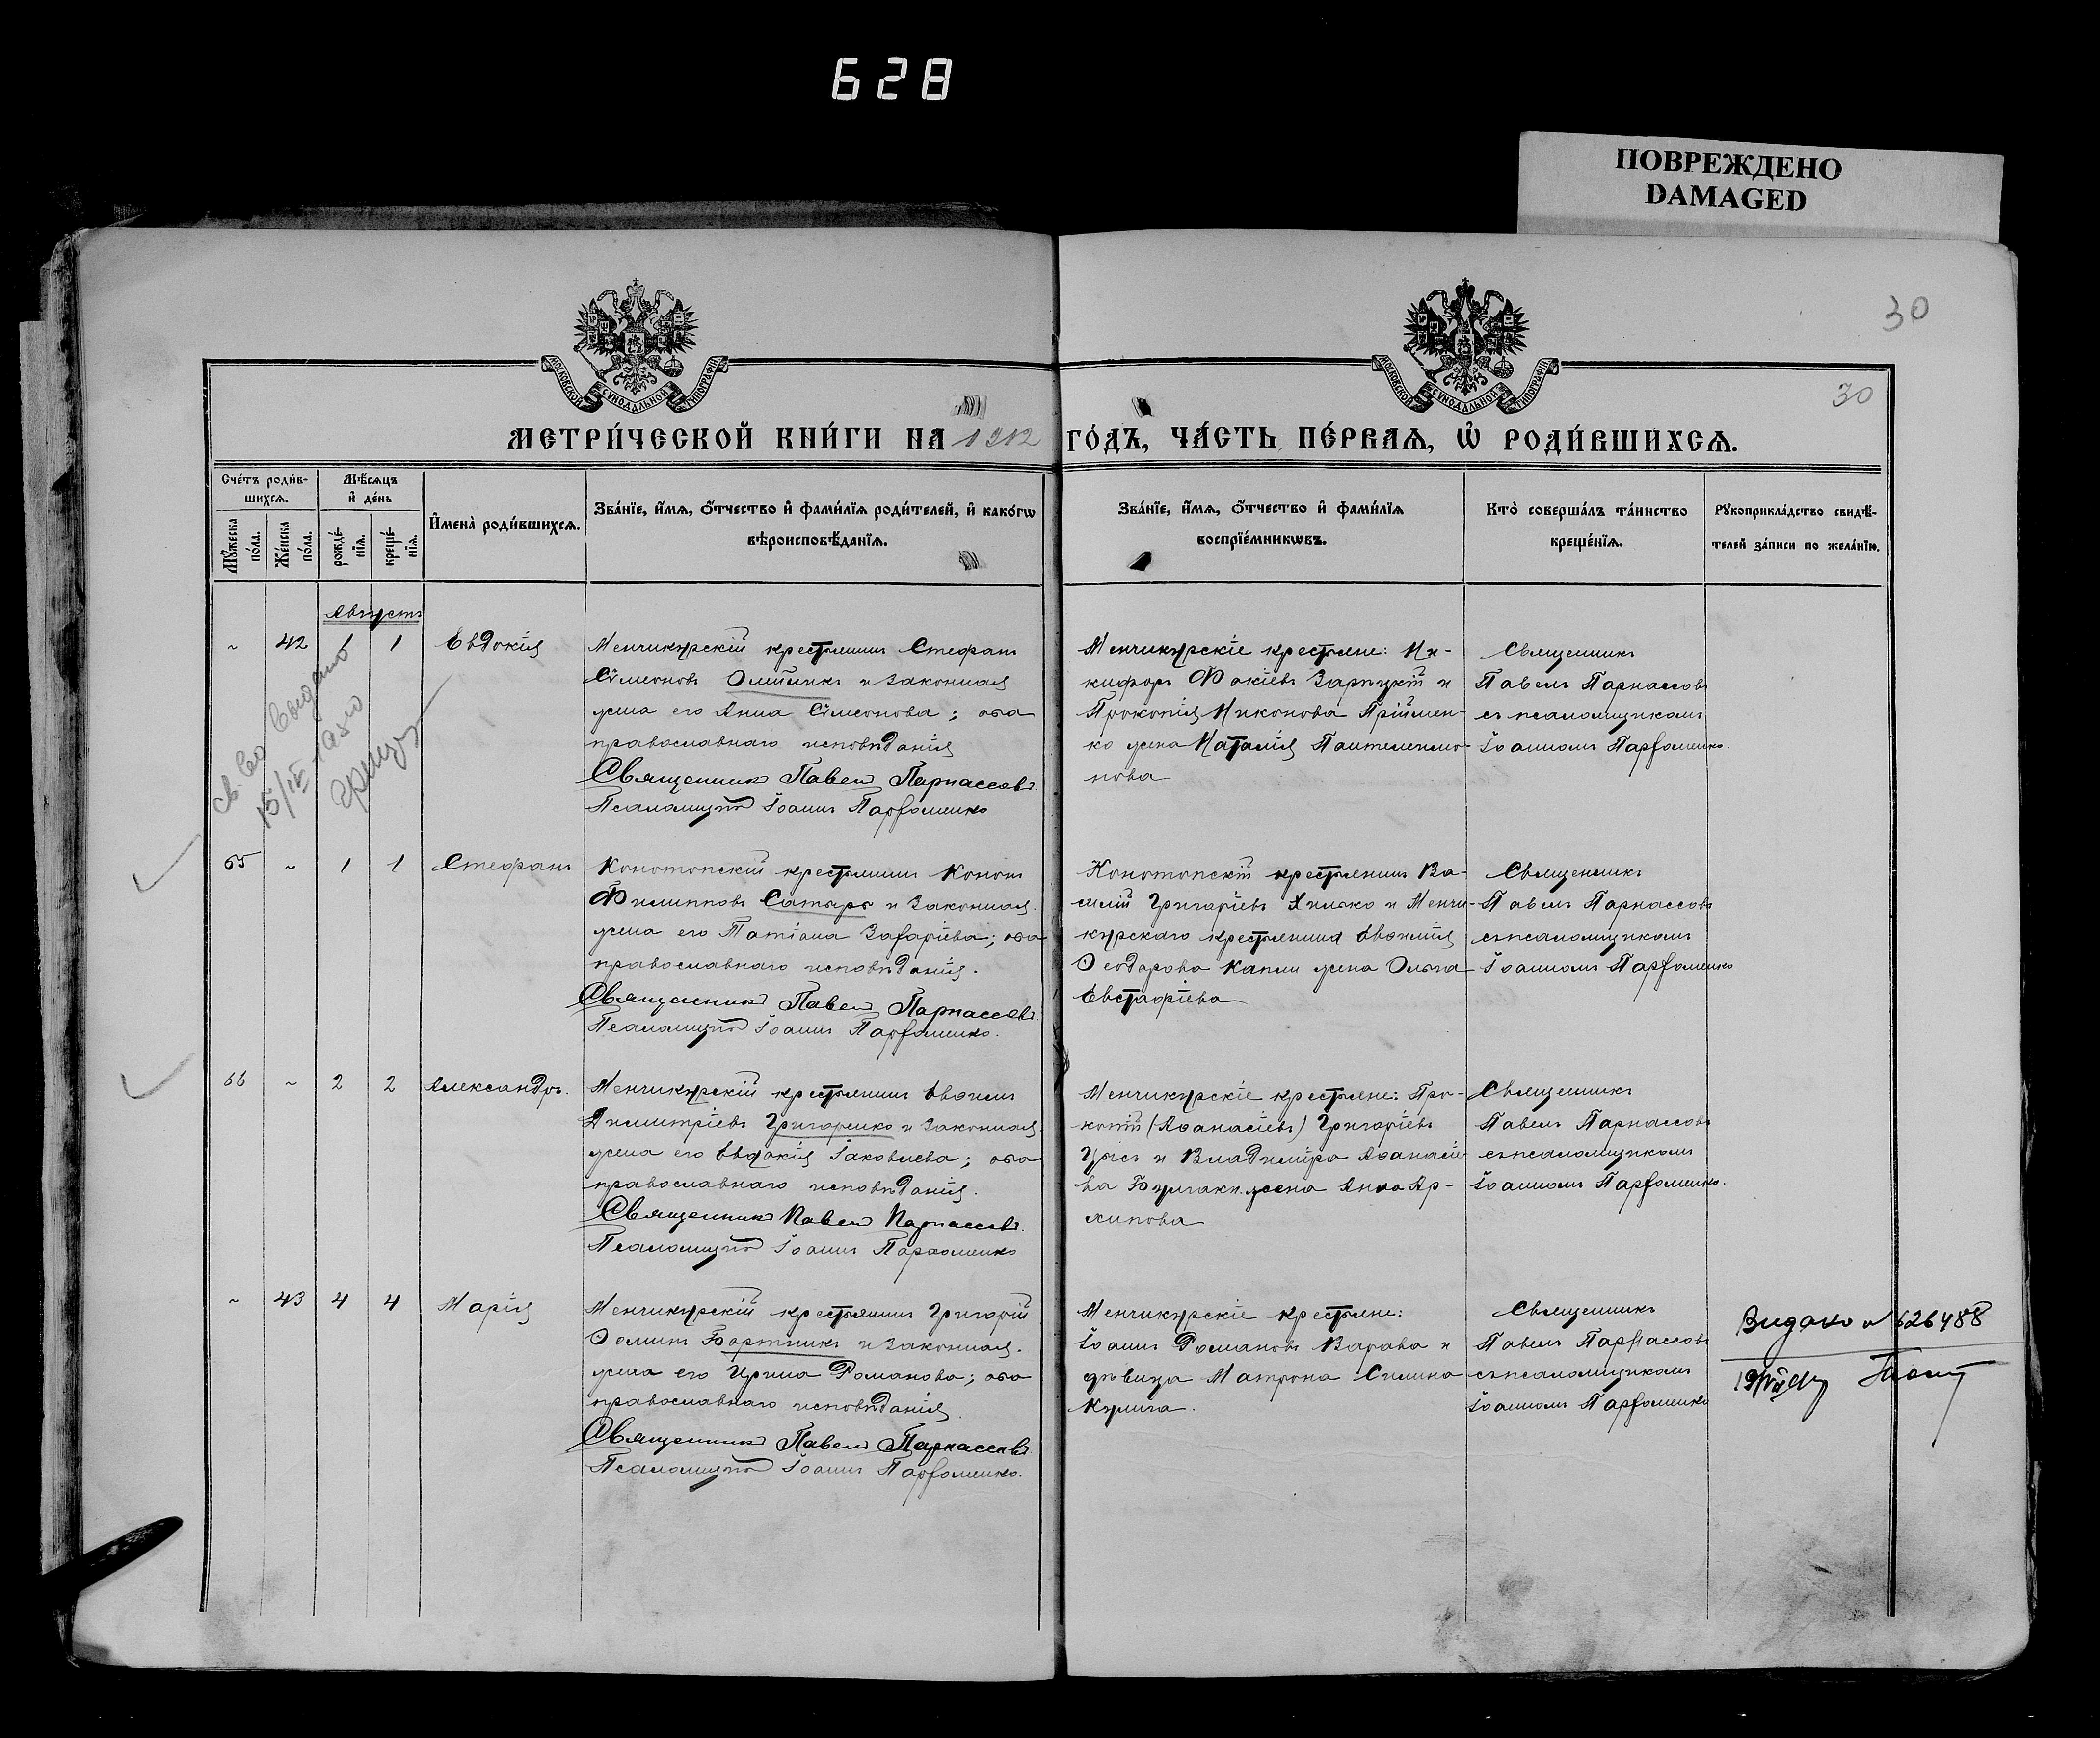 628
ПОВРЕЖДЕНО
DAMAGED
30
30
МОСКОВСКОЙ СѴНОДАЛЬНОЙ ТИПОГРАФІИ
МОСКОВСКОЙ СѴНОДАЛЬНОЙ ТИПОГРАФІИ
МЕТРИ́ЧЕСКОЙ КНИ́ГИ НА 1912 ГО́ДЪ, ЧА́СТЬ ПЕ́РВАѦ, Ѡ҆ РОДИ́ВШИХСѦ.
Сче́тъ роди́в-
шихсѧ.
Мꙋ́жеска по́ла.
Же́нска по́ла.
Мѣ́сѧцъ
и҆ де́нь
рожде́-нїѧ.
креще́-нїѧ.
И҆мена̀ роди́вшихсѧ.
Зва́нїе, и҆́мѧ, о҆́тчество и҆ фами́лїѧ роди́телей, и҆ како́гѡ
вѣроисповѣ́данїѧ.
Зва́нїе, и҆́мѧ, о҆́тчество и҆ фами́лїѧ
воспрїе́мникѡвъ.
Кто̀ соверша́лъ та́инство
креще́нїѧ.
Рꙋкоприкла́дство свидѣ́-
телей за́писи по жела́нїю.
Августъ
~ 42 1 1 Евдокія
Менчикурскій крестьянинъ Стефанъ
Сѵмеоновъ Олійникъ и законная
жена его Анна Сѵмеонова; оба
православнаго исповѣданія
Священникъ Павелъ Парнассовъ.
Псаломщикъ Іоаннъ Парѳоменко
Менчикурскіе крестьяне: Ни-
кифоръ Фокіевъ Заруцкій и
Прокопія Никонова Пріймен-
ко жена Наталія Пантелеимо-
нова
Священникъ
Павелъ Парнассовъ
съ псаломщикомъ
Іоанномъ Парѳоменко.
выдано
15/IV
65 ~ 1 1 Стефанъ
Конотопскій крестьянинъ Кононъ
Филипповъ Сатыръ и законная
жена его Татіана Захаріева; оба
православнаго исповѣданія.
Священникъ Павелъ Парнассовъ.
Псаломщикъ Іоаннъ Парѳоменко.
Конотопскій крестьянинъ Ва-
силій Григоріевъ Хилько и Менчи-
курскаго крестьянина Евѳимія
Ѳеодорова жена Ольга
Евстафіева
Священникъ
Павелъ Парнассовъ
съ псаломщикомъ
Іоанномъ Парѳоменко
66 ~ 2 2 Александръ.
Менчикурскій крестьянинъ Евѳимъ
Димитріевъ Григоренко и законная
жена его Евдокія Іаковлева; оба
православнаго исповѣданія.
Священникъ Павелъ Парнассовъ.
Псаломщикъ Іоаннъ Парѳоменко
Менчикурскіе крестьяне: Про-
копій (Аѳанасіевъ) Григоріевъ
и Владиміра Аѳанасіе-
ва жена Анна Ар-
хипова
Священникъ
Павелъ Парнассовъ
съ псаломщикомъ
Іоанномъ Парѳоменко.
~ 43 4 4 Марія
Менчикурскій крестьянинъ Григорій
Ѳоминъ Бортникъ и законная
жена его Ирина Романова; оба
православнаго исповѣданія.
Священникъ Павелъ Парнассовъ.
Псаломщикъ Іоаннъ Парѳоменко.
Менчикурскіе крестьяне:
Іоаннъ Романовъ Варава и
дѣвица Матрона Силина
Кулига.
Священникъ
Павелъ Парнассовъ
съ псаломщикомъ
Іоанномъ Парѳоменко
Видано № 626488